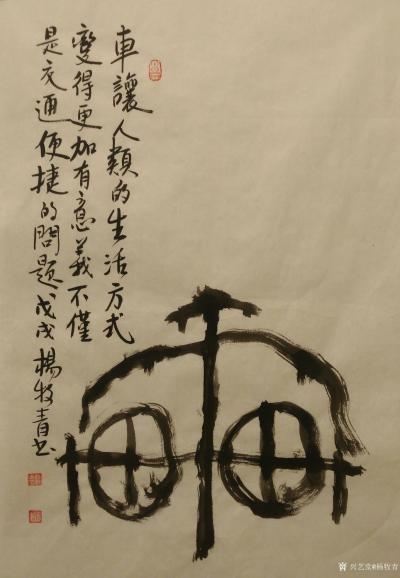 車讓人類的生活方式
變得更加有意義不僅
是交通便捷的問題戊戌楊牧青书
兴艺堂@杨牧青